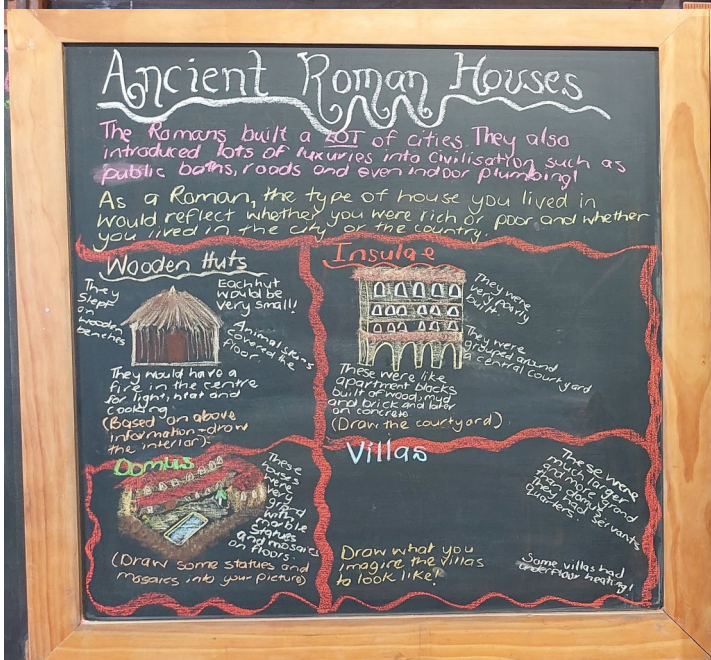 Ancient Roman Houses
The Romans built a LOT of cities. They also
introduced lots of luxuries into civilisation such as
public baths, roads and even indoor plumbing!
As a Roman, the type of house you lived in
would reflect whether you were rich or poor and whether
you lived in the city or the country.
Wooden Huts
They
slept
on
wooden
benches
Each hut
would be
very small!
Animal skins
covered the
floor
They would have a
fire in the centre
for light, heat and
cooking.
(Based on above
information-draw
the interior).
Insulae
They were
very poorly
built.
They were
grouped around
a central courtyard
These were like
apartment blocks
built of wood, mud
and brick and later
on concrete
(Draw the courtyard)
Domus
These
houses
were
very
grand
with
marble
statues
and mosaics
on floors.
(Draw some statues and
mosaics into your picture)
Villas
These were
much larger
and more grand
than domus
they had servants
quarters.
Draw what you
imagine the villas
to look like!
Some villas had
underfloor heating!